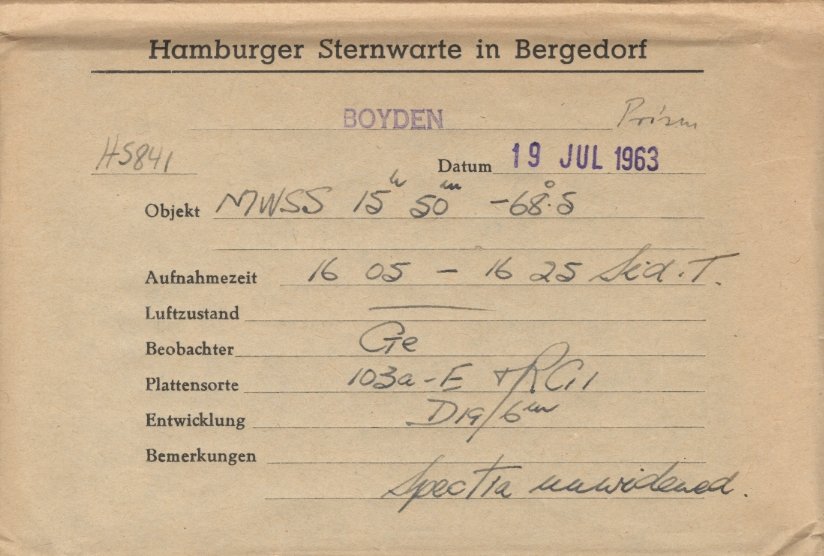 Hamburger Sternwarte in Bergedorf
BOYDEN Prism
HS841
Datum 19 JUL 1963
Objekt MWSS 15h 50m -68°.5
Aufnahmezeit 16 05 - 16 25 Sid. T.
Luftzustand
Beobachter Ge
Plattensorte 103a-E + RG1
Entwicklung D19/6m
Bemerkungen
Spectra unwidened.